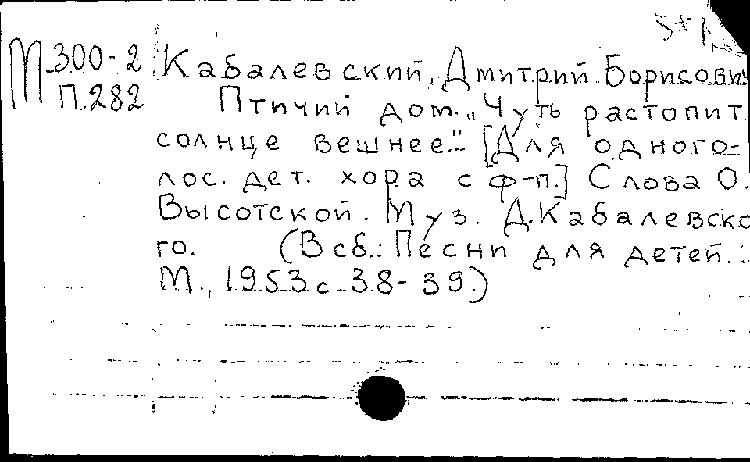 М 300-2 Кабалевский, Дмитрий Борисович
П.282 Птичий дом. „Чуть растопит
солнце вешнее..." [Для одного-
лос. дет. хора с ф-п.] Слова О.
Высотской. Муз. Д.Кабалевско
го. (В сб.: Песни для детей.:
М., 1953 с. 38-39.)